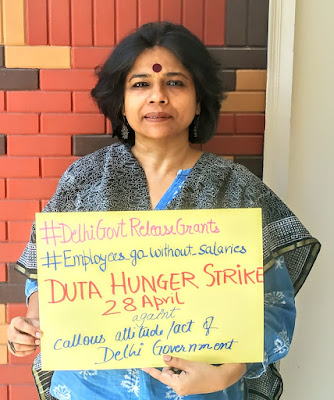 #DelhiGovt.ReleaseGrants
#Employees go without salaries
DUTA HUNGER STRIKE
28 April
against
callous attitude/act of
Delhi Government